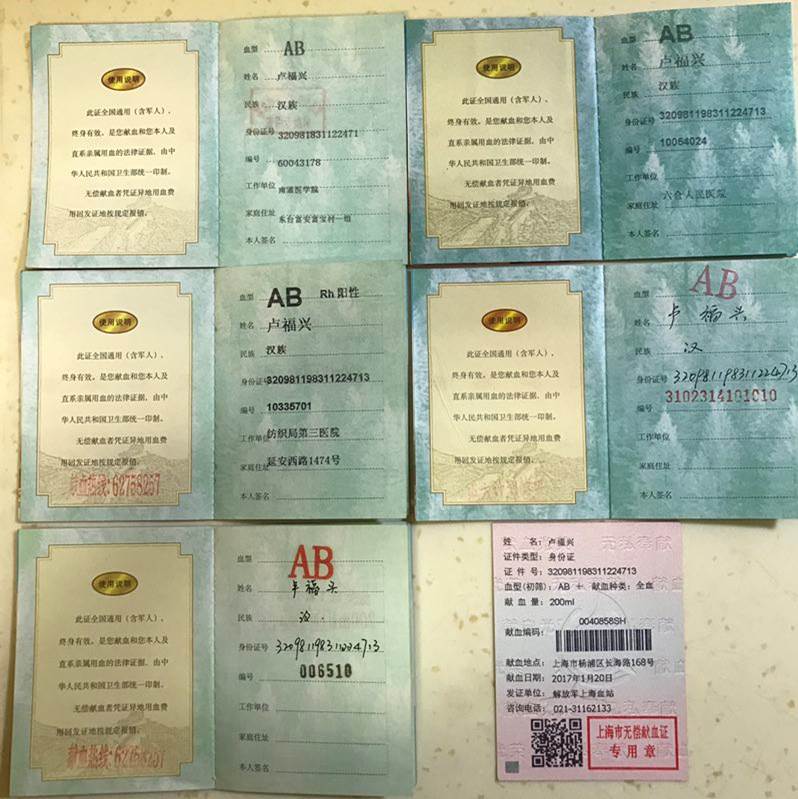 使用说明
此证全国通用（含军人）、
终身有效，是您献血和您本人及
直系亲属用血的法律证据，由中
华人民共和国卫生部统一印制。
无偿献血者凭证异地用血费
用回发证地按规定报销。
血型 AB
姓名 卢福兴
民族 汉族
身份证号 320981831122471
编号 60043178
工作单位 南通医学院
家庭住址 东台富安富宝村一组
本人签名
使用说明
此证全国通用（含军人）、
终身有效，是您献血和您本人及
直系亲属用血的法律证据，由中
华人民共和国卫生部统一印制。
无偿献血者凭证异地用血费
用回发证地按规定报销。
血型 AB
姓名 卢福兴
民族 汉族
身份证号 320981198311224713
编号 10054024
工作单位
六合人民医院
家庭住址
本人签名
使用说明
此证全国通用（含军人）、
终身有效，是您献血和您本人及
直系亲属用血的法律证据，由中
华人民共和国卫生部统一印制。
无偿献血者凭证异地用血费
用回发证地按规定报销。
献血热线:62758257
血型 AB Rh 阳性
姓名 卢福兴
民族 汉族
身份证号 320981198311224713
编号 10335701
工作单位 纺织局第三医院
延安西路1474号
家庭住址
本人签名
使用说明
此证全国通用（含军人）、
终身有效，是您献血和您本人及
直系亲属用血的法律证据，由中
华人民共和国卫生部统一印制。
无偿献血者凭证异地用血费
用回发证地按规定报销。
血型 AB
姓名 卢福兴
民族 汉
身份证号 320981198311224713
编号 3102314101010
工作单位
家庭住址
本人签名
使用说明
此证全国通用（含军人）、
终身有效，是您献血和您本人及
直系亲属用血的法律证据，由中
华人民共和国卫生部统一印制。
无偿献血者凭证异地用血费
用回发证地按规定报销。
献血热线:62758257
血型 AB
姓名 卢福兴
民族 汉
身份证号 320981198311224713
编号 006510
工作单位
家庭住址
本人签名
姓 名：卢福兴
证件类型：身份证
证 件 号：320981198311224713
血型(初筛)：AB ＋ 献血种类：全血
献 血 量：200ml
0040858SH
献血编码：
献血地点：上海市杨浦区长海路168号
献血日期：2017年1月20日
发证单位：解放军上海血站
咨询电话：021-31162133
上海市无偿献血证
专用章